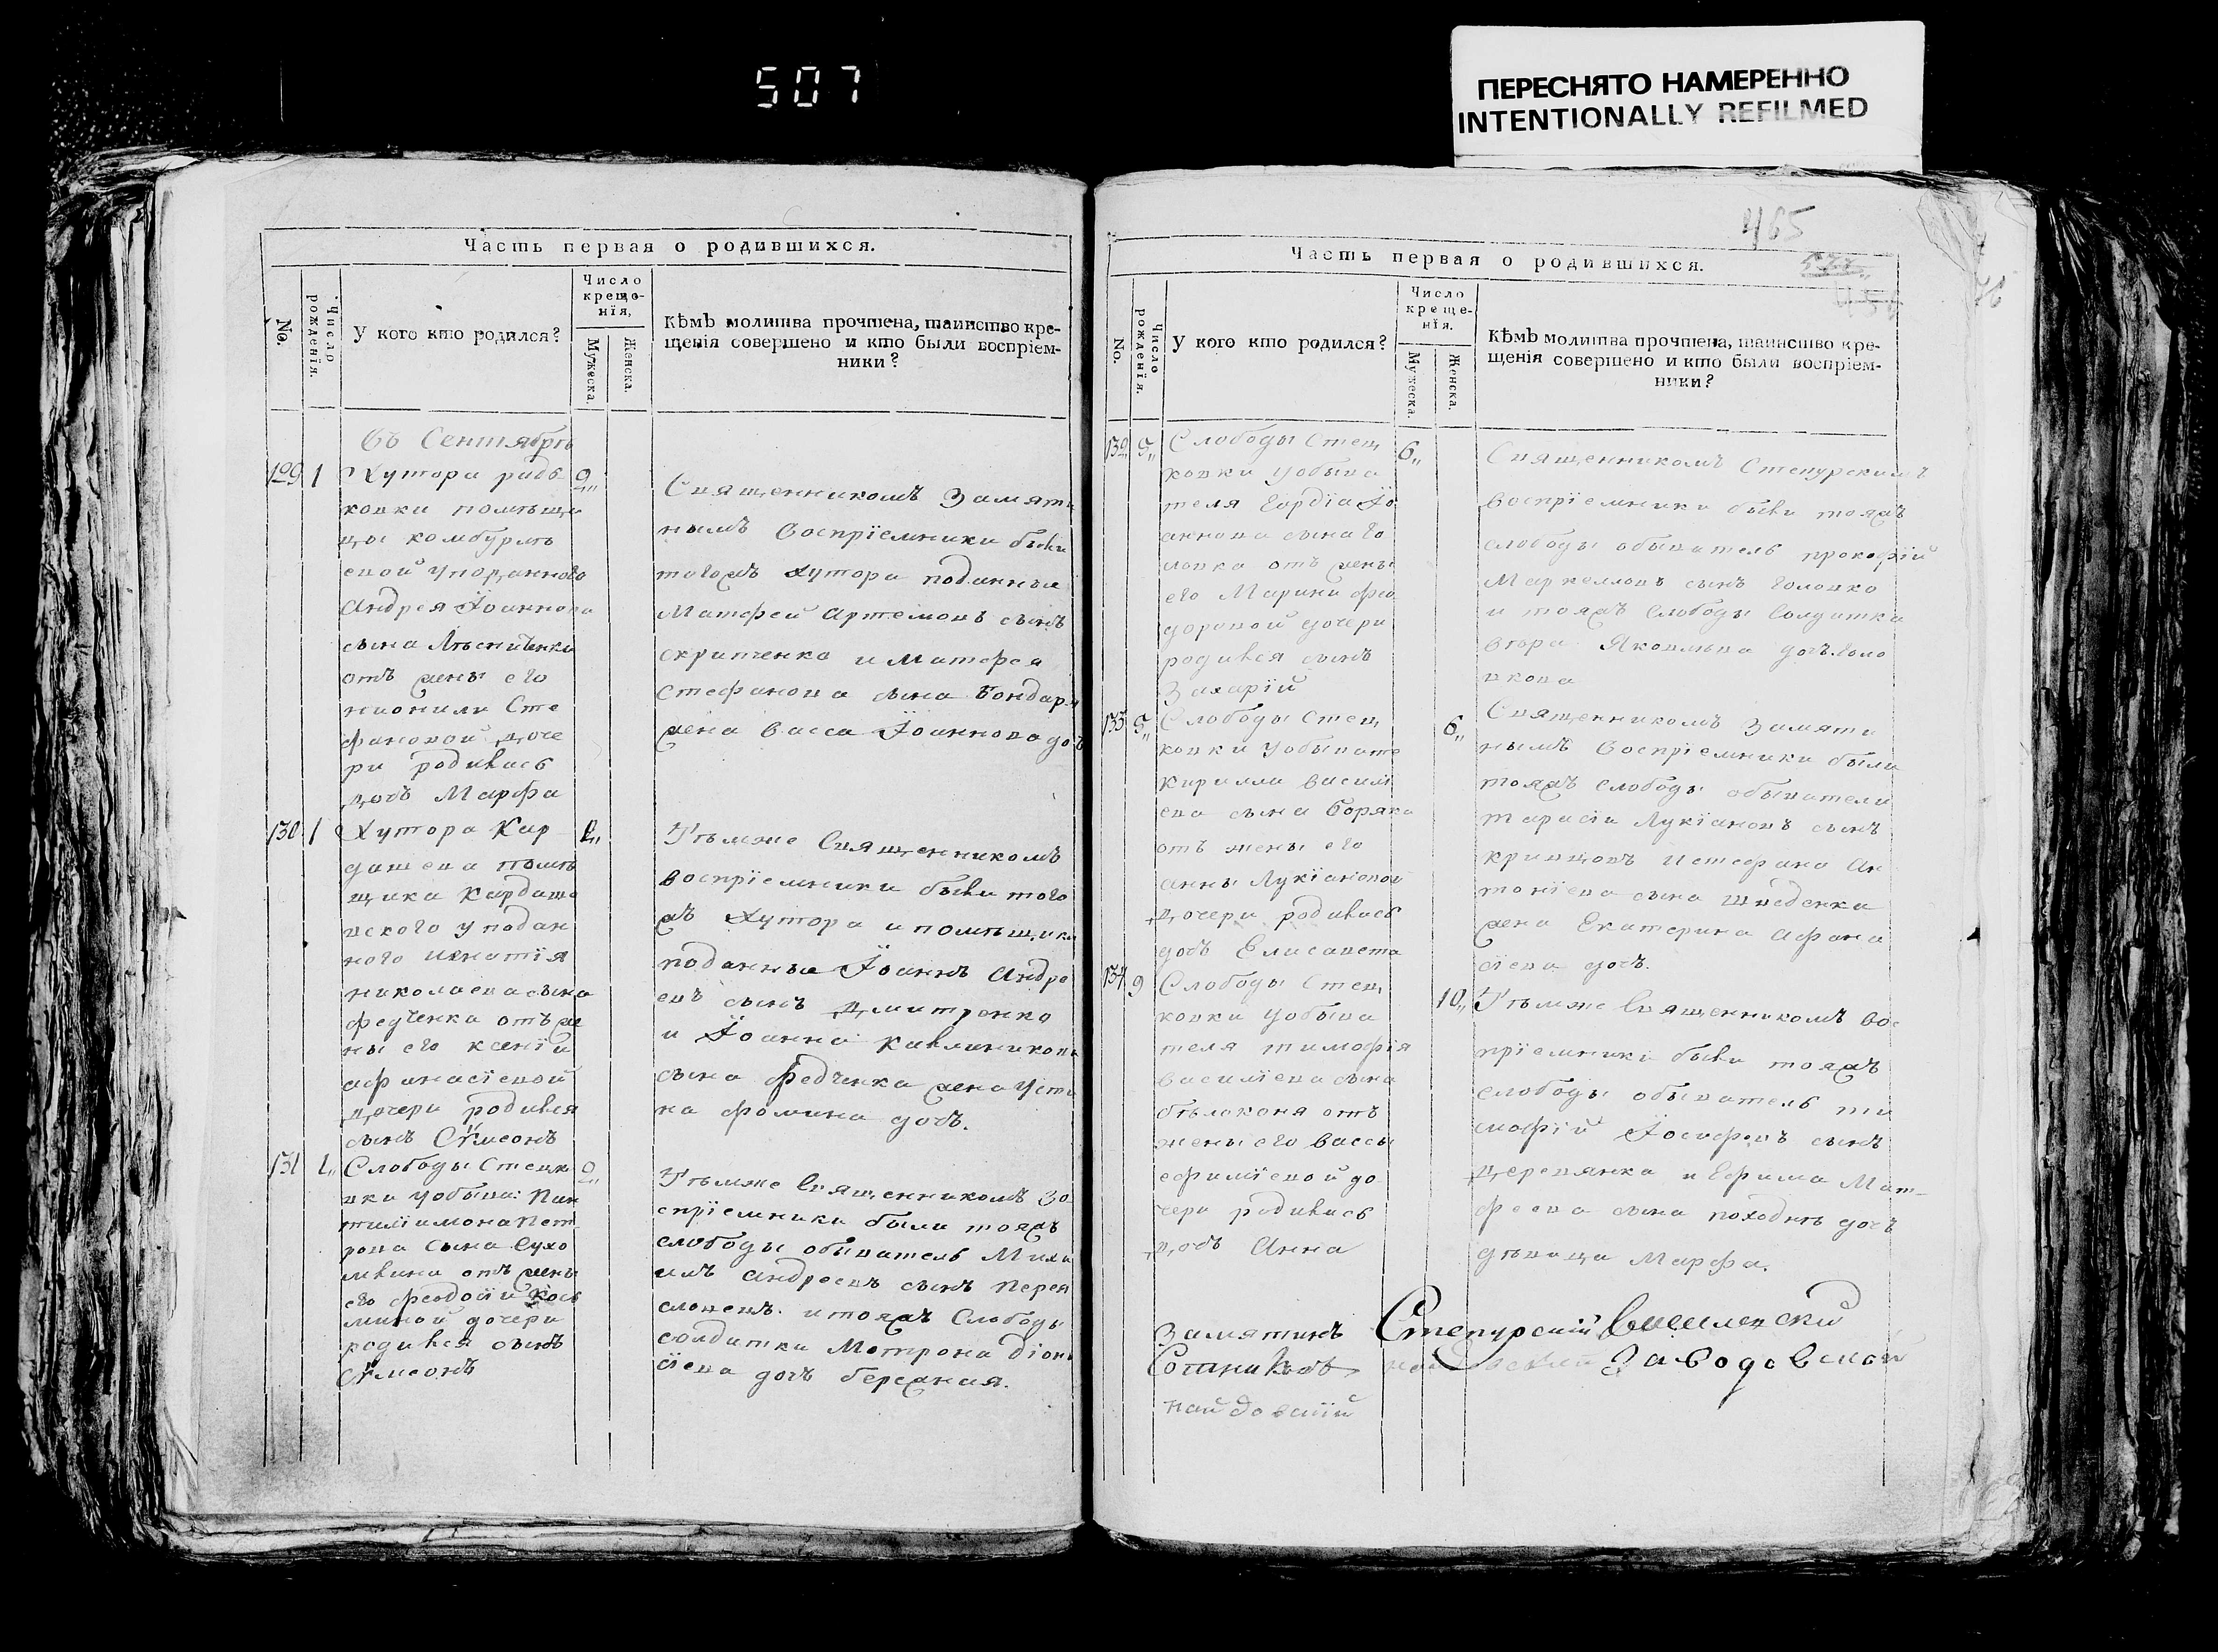 507
ПЕРЕСНЯТО НАМЕРЕННО
INTENTIONALLY REFILMED
Часть первая о родившихся.
No.
Число рожденія.
У кого кто родился?
Число
креще-
нія,
Мужеска.
Женска.
Кѣмъ молитва прочтена, таинство кре-
щенія совершено и кто были воспріем-
ники?
Въ Сентябрѣ
129 1
Хутора
ковки помѣщи
цы комбурлѣ
евой уподанного
Андрея Іоаннова
сына
отъ жены его
Сте
фановой доче
ри родилась
дочь Марфа
2
Священникомъ Замяти
нымъ воспріемники были
тогожъ хутора поданныя
Матфей Артемовъ сынъ
и Матфея
Стефанова сына Бондаря
жена Васса Іоаннова дочь
130 1
Хутора Кар
дашева помѣ
щика Кардаше
вского уподан
ного Игнатія
николаева сына
федченка отъ же
ны его ксеніи
афанасіевой
дочери родился
сынъ Сѵмеонъ
2
Тѣмже Священникомъ
воспріемники были того
жъ хутора и помѣщика
поданныя Іоаннъ Андре
евъ сынъ Дмитренко
и Іоанна
сына федченка жена Усти
на фомина дочь.
131 1
Слободы Стецк
вки уобыва: Пан
телiимона Пет
рова сына Сухо
млина отъ жены
его феодосіи Козь
миной дочери
родился сынъ
Сѵмеонъ
2
Тѣмже Священникомъ во
спріемники были тояжъ
слободы обыватель Миха
илъ Андреевъ сынъ Перея
словецъ. и тояжъ Слободы
солдатка Матрона Діони
сіева дочь бережная.
465
Часть первая о родившихся.
577
No.
Число рожденія.
У кого кто родился?
Число
креще-
нія.
Мужеска.
Женска.
Кѣмъ молитва прочтена, таинство кре-
щенія совершено и кто были воспріем-
ники?
132 5
Слободы Стец
ковки уобыва
теля Гордіа Іо
аннова сына Го
ловка отъ жены
его Марини фео
доровой дочери
родился сынъ
Захарій
6
Священникомъ Степурскимъ
воспріемники были тояжъ
слободы обыватель прокофій
Маркелловъ сынъ головко
и тояжъ Слободы Солдатка
Яковлева дочь Голо
вкова
133 5
Слободы Стец
ковки уобывате
Кирилла василі
ева сына Боряка
отъ жены его
анны Лукіановой
дочери родилась
дочь Елисавета
6
Священникомъ Замяти
нымъ воспріемники были
тояжъ слободы обыватели
тарасій Лукіановъ сынъ
кривцовъ истефана Ан
тоніева сына шведенка
жена Екатерина афана
сіева дочь.
134 9
Слободы Стец
ковки уобыва
теля тимофія
василіева сына
бѣлоконя отъ
жены его вассы
ефиміевой до
чери родилась
дочь Анна
10
Тѣмже Священникомъ во
пріемники были тояжъ
слободы обыватель ти
мофій Іосифовъ сынъ
Деревянка и Ефима Мат-
феева сына походнѣ дочь
дѣвица Марфа.
Замятинъ Степурскій
Сотниковъ Заводовской
найдовскій